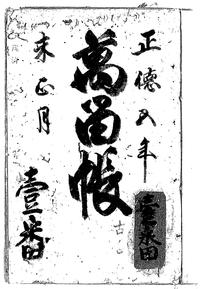 正徳五年
萬留帳
未正月
壹番
壹番